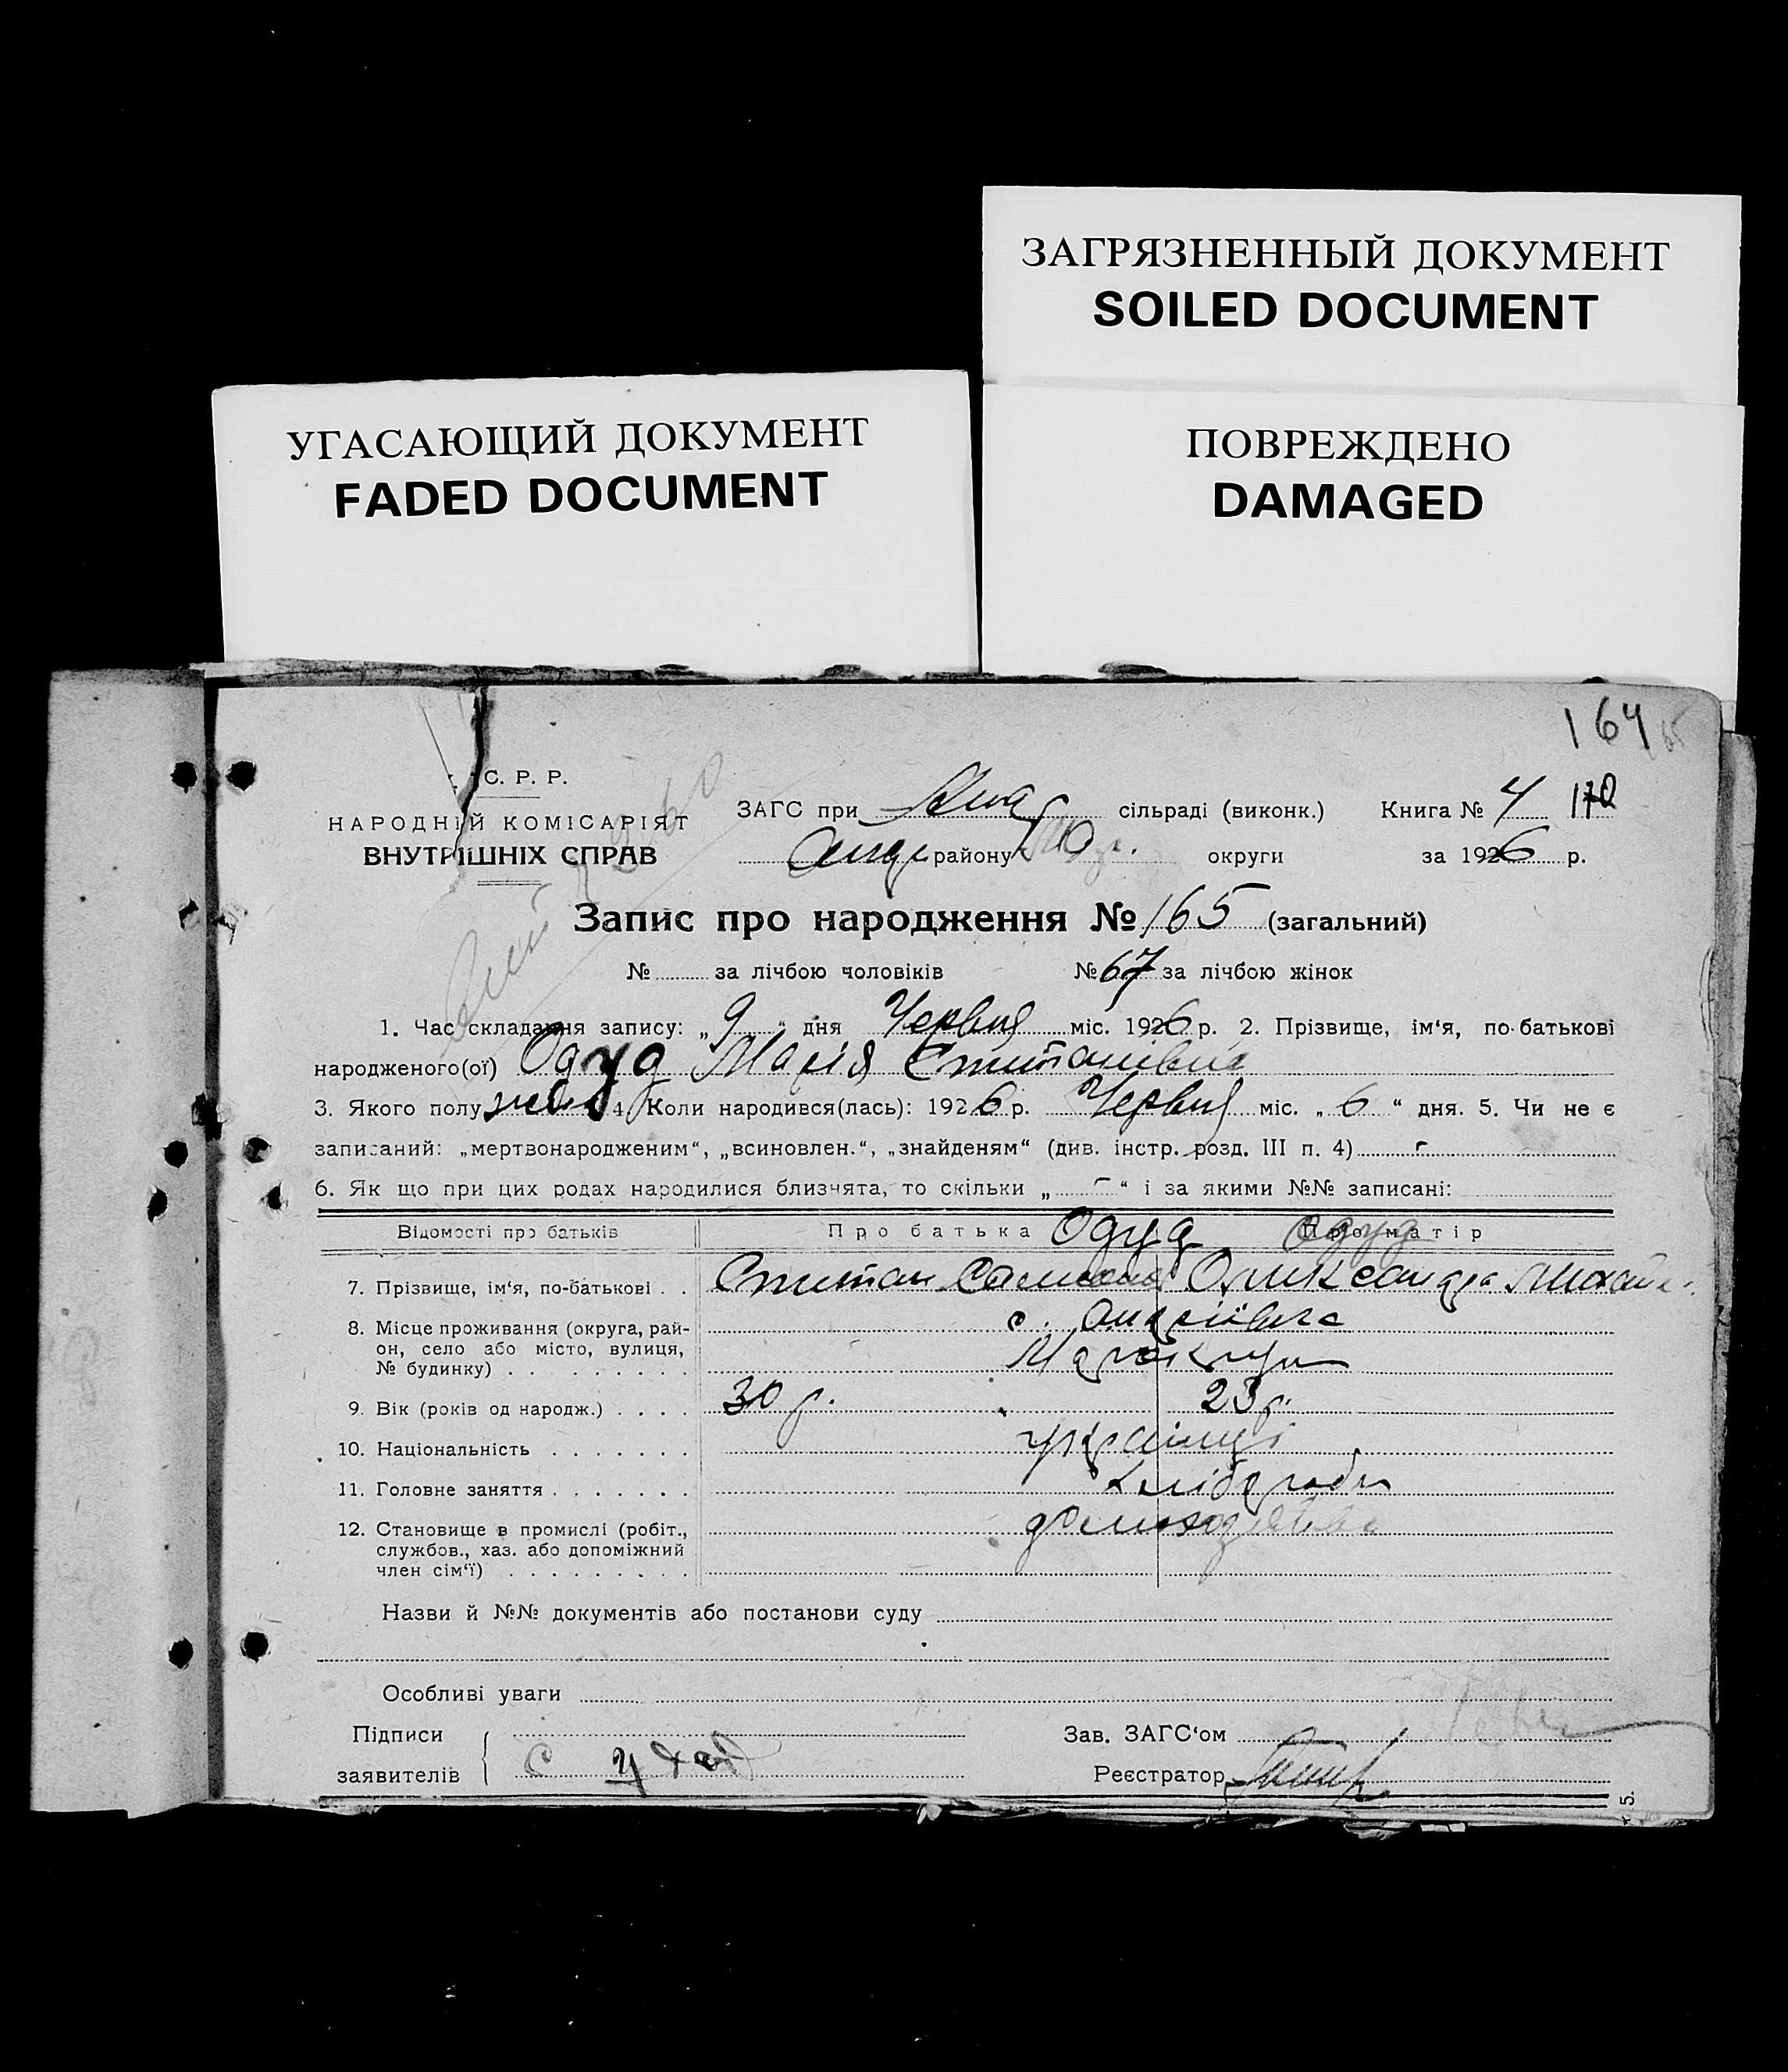 ЗАГРЯЗНЕННЫЙ ДОКУМЕНТ
SOILED DOCUMENT
УГАСАЮЩИЙ ДОКУМЕНТ
FADED DOCUMENT
ПОВРЕЖДЕНО
DAMAGED
164 65
С. Р. Р.
НАРОДНІЙ КОМІСАРІЯТ
ВНУТРІШНІХ СПРАВ
ЗАГС при сільраді (виконк.) Книга № 4 170
району округи за 1926 р.
Запис про народження № 165 (загальний)
№ за лічбою чоловіків № 67 за лічбою жінок
1. Час складання запису: „9“ дня Червня міс. 1926 р. 2. Прізвище, ім‘я, по-батькові
народженого(ої) Одуд Марія Стипанівна
3. Якого полу жін 4. Коли народився(лась): 1926 р. Червня міс. „6“ дня. 5. Чи не є
записаний: „мертвонародженим“, „всиновлен.“, „знайденям“ (див. інстр. розд. III п. 4) -
6. Як що при цих родах народилися близнята, то скільки „-“ і за якими №№ записані:
Відомості про батьків Про батька Одуд Про матір Одуд
7. Прізвище, ім‘я, по-батькові . . Стипан Олександра
8. Місце проживання (округа, рай- с. Андріївка
он, село або місто, вулиця,
№ будинку) . . . . . . . . .
9. Вік (років од народж.) . . . . 30 р. 23 р.
10. Національність . . . . . . . українці
11. Головне заняття . . . . . . . хлібороби
12. Становище в промислі (робіт.,
службов., хаз. або допоміжний
член сім‘ї) . . . . . . . . .
Назви й №№ документів або постанови суду
Особливі уваги
Підписи Зав. ЗАГС‘ом
заявителів Реєстратор